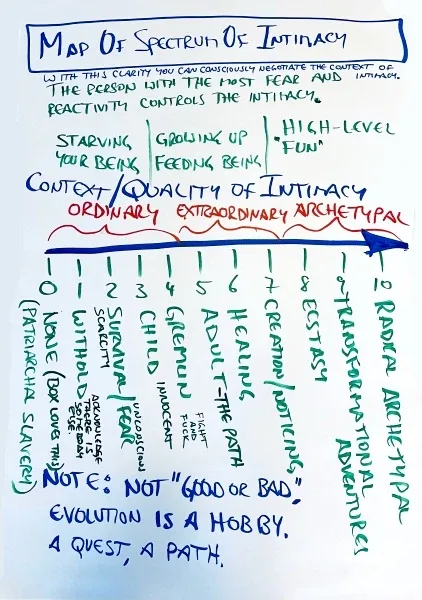 MAP OF SPECTRUM OF INTIMACY
WITH THIS CLARITY YOU CAN CONSCIOUSLY NEGOTIATE THE CONTEXT OF INTIMACY.
THE PERSON WITH THE MOST FEAR AND
REACTIVITY CONTROLS THE INTIMACY.
STARVING
YOUR BEING
GROWING UP
FEEDING BEING
HIGH-LEVEL
"FUN"
CONTEXT/QUALITY OF INTIMACY
ORDINARY EXTRAORDINARY ARCHETYPAL
0 1 2 3 4 5 6 7 8 9 10
NONE (BOX LOVES THIS)
(PATRIARCHA SLAVERY)
WITHOLD
SCARCITY
ACKNOWLEDGE
THERE IS
SOMEBODY
ELSE.
SURVIVAL/FEAR
CHILD
UNCONSCIOUS
INNOCENT
GREMLIN
FIGHT
AND
FUCK
ADULT-THE PATH
HEALING
CREATION/NOTICING
ECSTASY
TRANSFORMATIONAL
ADVENTURES
RADICAL ARCHETYPAL
NOTE: NOT "GOOD OR BAD".
EVOLUTION IS A HOBBY.
A QUEST, A PATH.